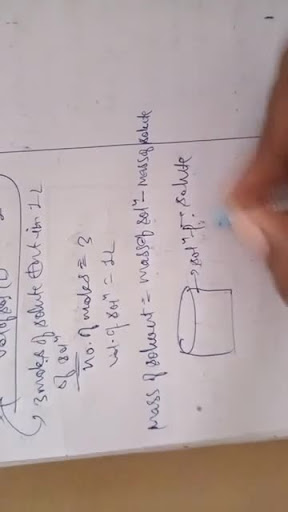 3 moles of solute in 1L
of solⁿ
no. of moles = 3
vol. of solⁿ = 1L
mass of solvent = mass of solⁿ - mass of solute
→ solⁿ solute